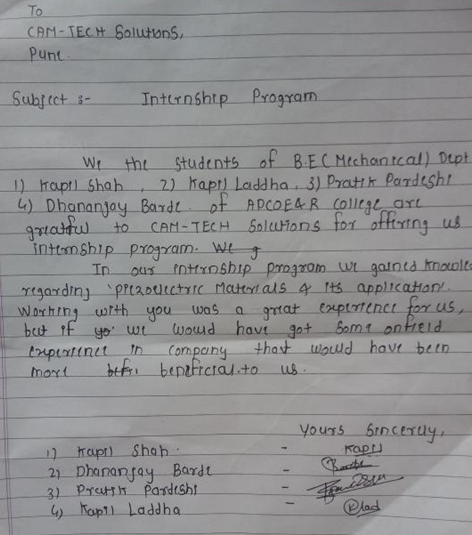 To
CAM-TECH Solutions,
Pune.
Subject :- Internship Program
We the students of B.E (Mechanical) Dept
1) Kapil Shah , 2) Kapil Laddha, 3) Pratik Pardeshi
4) Dhananjay Barde. of ADCOE&R College are
greatful to CAM-TECH Solutions for offering us
internship program. We g
In our internship program we gained knowle
regarding 'Piezoelectric Materials & its application.
Working with you was a great experience for us,
but if yo we would have got some onfield
experience in company that would have been
more befi beneficial to us.
Yours Sincerely,
1) Kapil Shah. - Kapil
2) Dhananjay Barde - Barde
3) Pratik Pardeshi -
4) Kapil Laddha - Klad